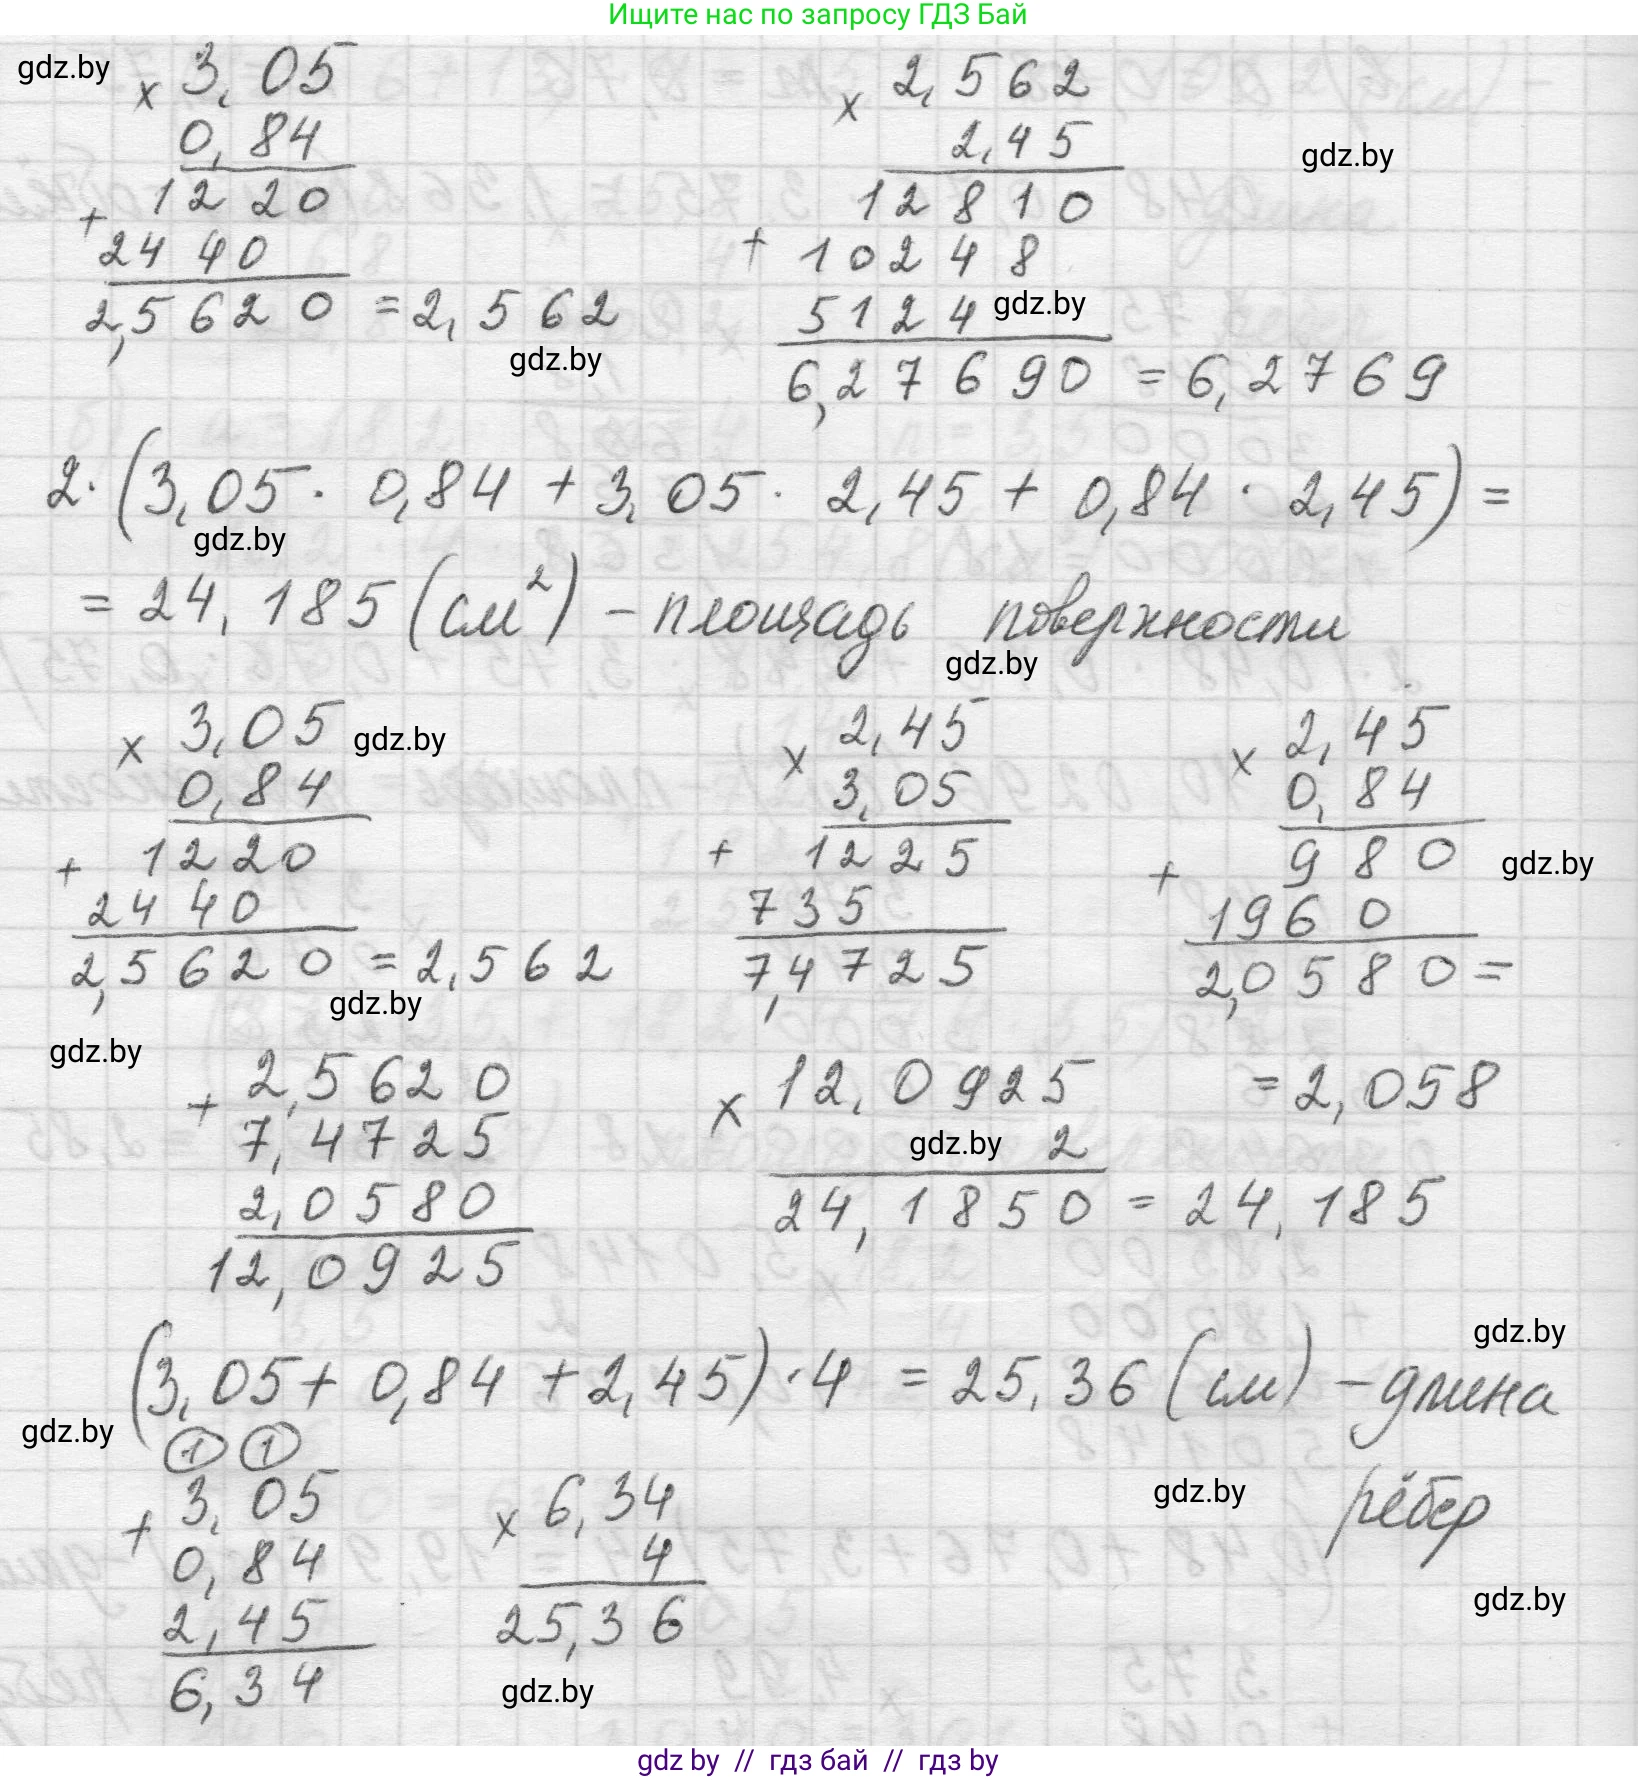 Ищите нас по запросу ГДЗ Бай
gdz.by
× 3,05
0,84
1220
+ 2440
2,5620 = 2,562
gdz.by
× 2,562
2,45
gdz.by
12810
+ 10248
5124 gdz.by
6,27690 = 6,2769
2·(3,05 · 0,84 + 3,05 · 2,45 + 0,84 · 2,45) =
gdz.by
= 24,185 (см²) – площадь поверхности
gdz.by
× 3,05 gdz.by
0,84
+ 1220
2440
2,5620 = 2,562
gdz.by
× 2,45
3,05
+ 1225
735
7,4725
× 2,45
0,84
+ 980 gdz.by
1960
2,0580 =
= 2,058
gdz.by
+ 2,5620
7,4725
2,0580
12,0925
× 12,0925
gdz.by 2
24,1850 = 24,185
gdz.by
(3,05 + 0,84 + 2,45) · 4 = 25,36 (см) – длина
рёбер
gdz.by
1 1
+ 3,05
0,84
2,45
6,34
× 6,34
4
25,36
gdz.by
gdz.by
gdz.by
gdz by // гдз бай // гдз by